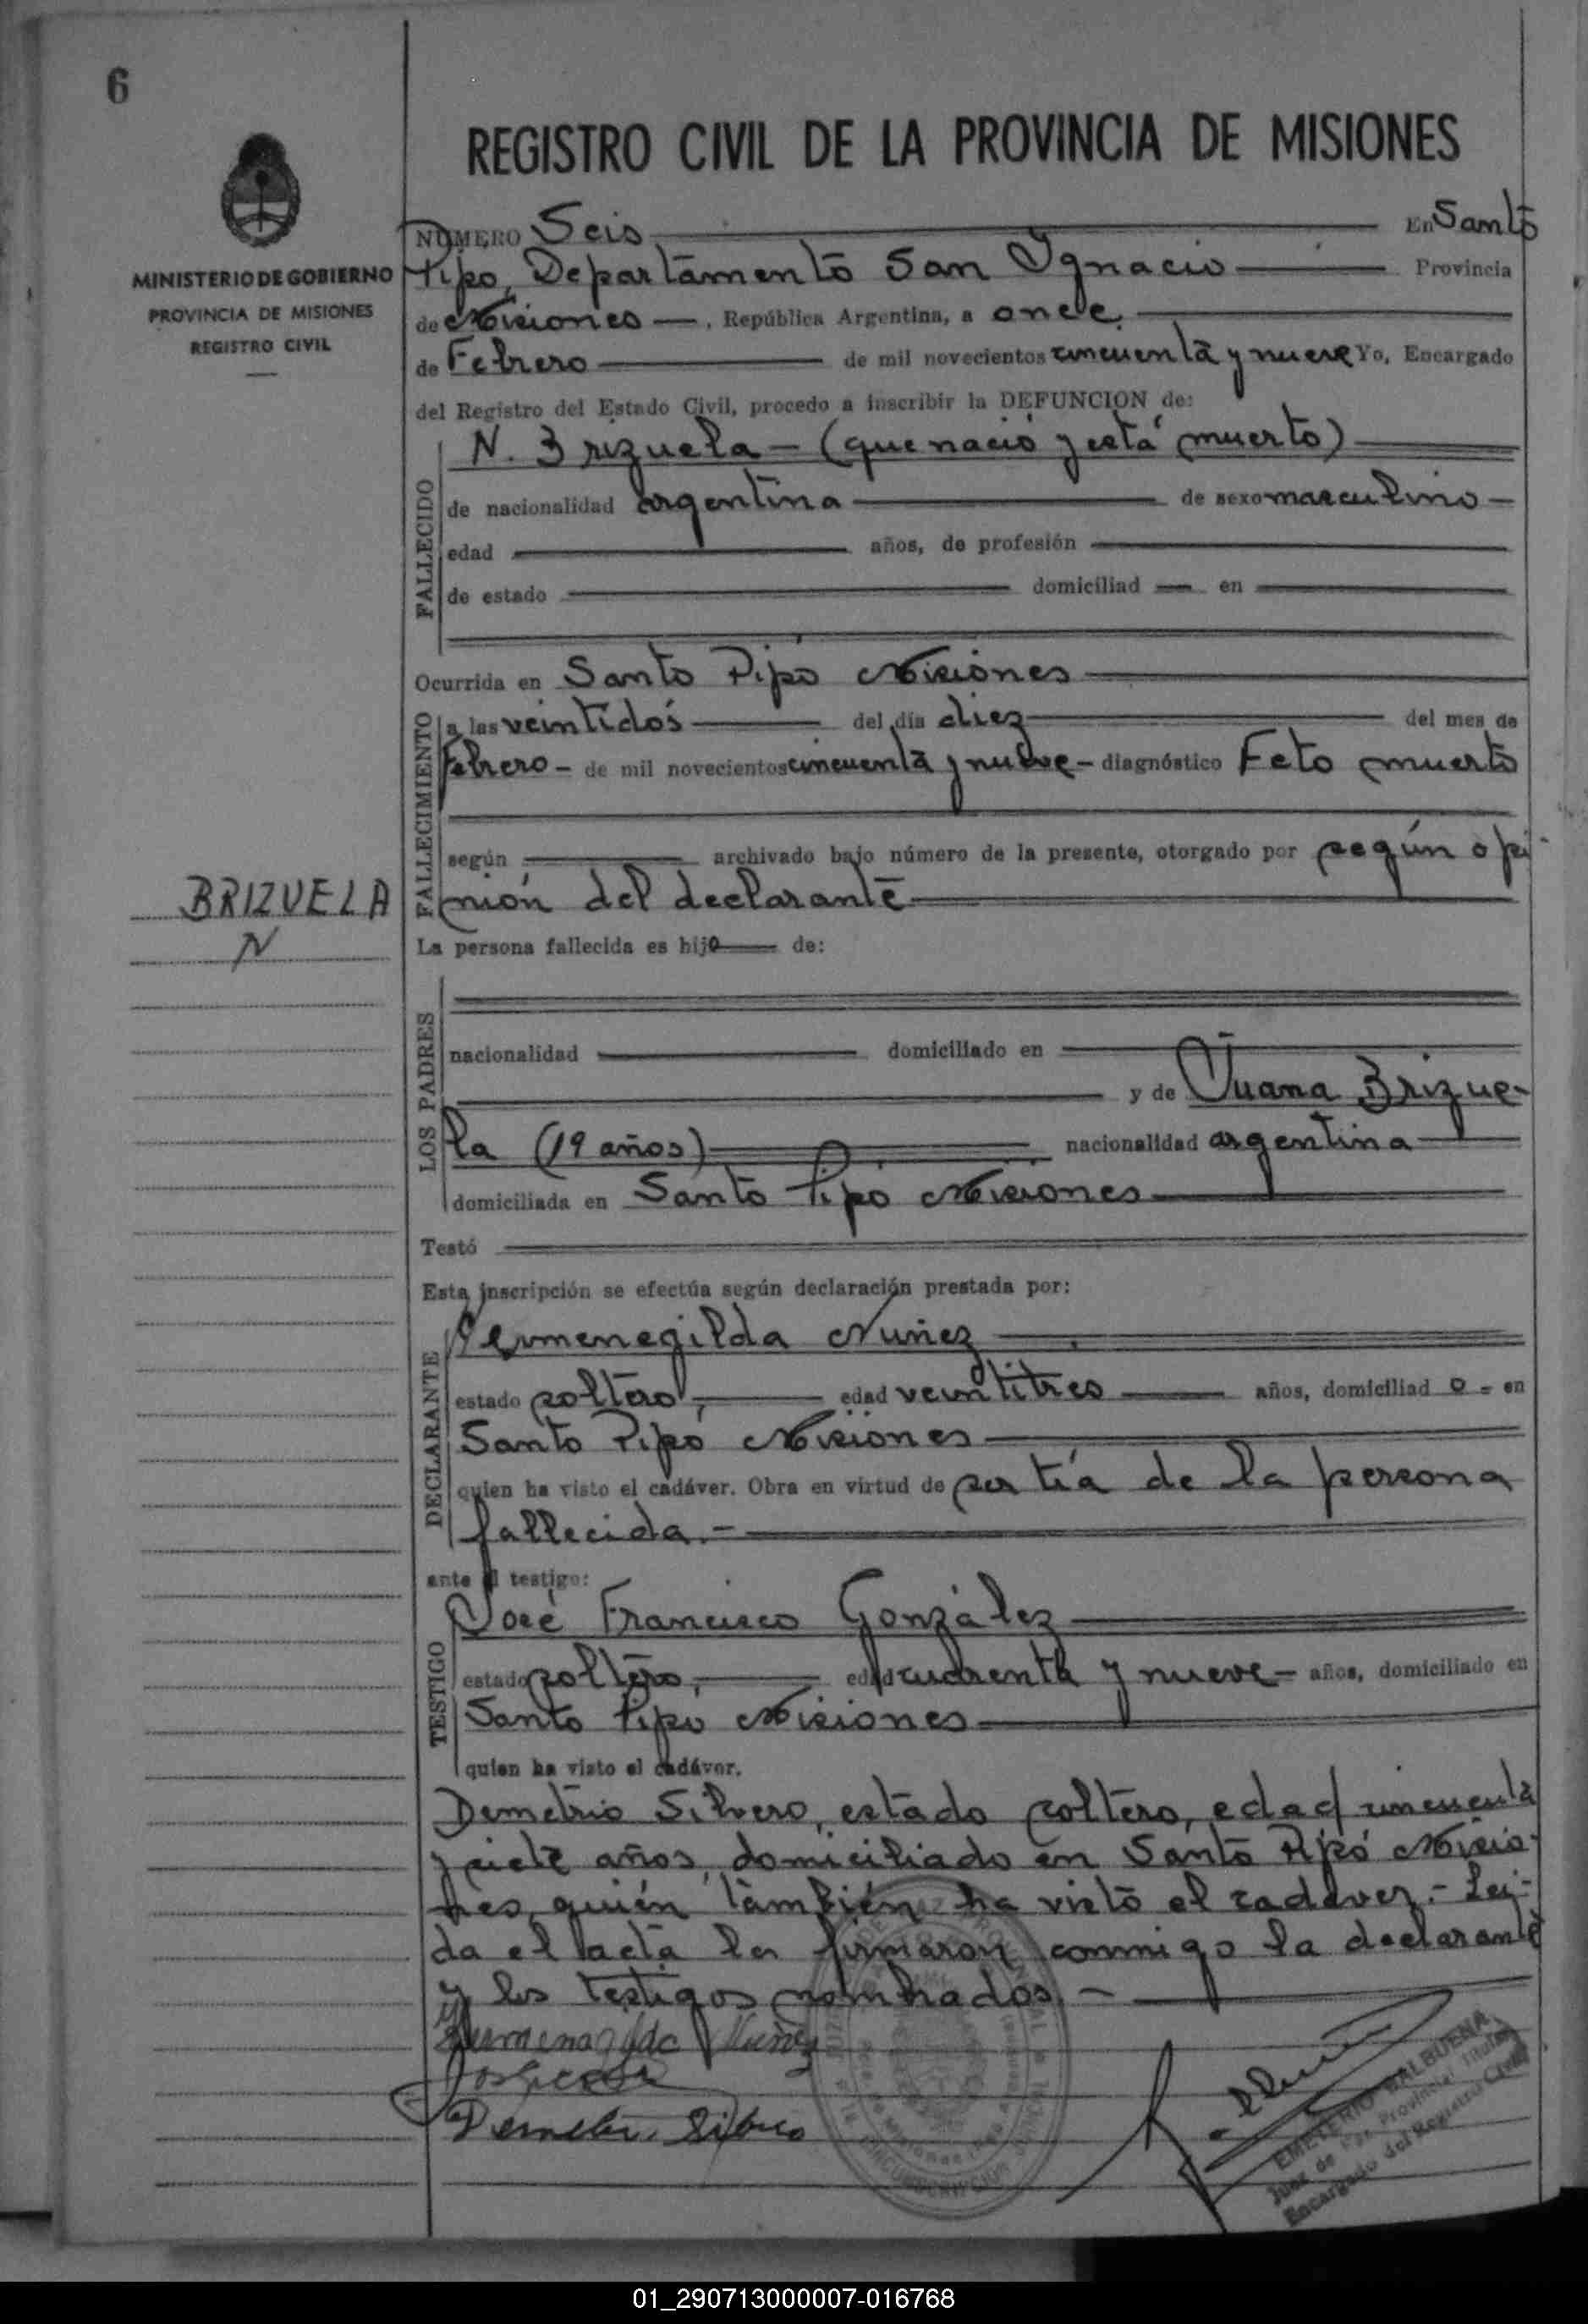 6
REGISTRO CIVIL DE LA PROVINCIA DE MISIONES
MINISTERIO DE GOBIERNO
PROVINCIA DE MISIONES
REGISTRO CIVIL
NÚMERO Seis En Santo
Pipo, Departamento San Ygnacio Provincia
de Misiones, República Argentina, a once
de Febrero de mil novecientos cincuenta y nueve Yo, Encargado
del Registro del Estado Civil, procedo a inscribir la DEFUNCION de:
FALLECIDO
N. Brizuela - (que nació y está muerto)
de nacionalidad argentina de sexo masculino -
edad años, de profesión
de estado domiciliad en
Ocurrida en Santo Pipó Misiones
FALLECIMIENTO
a las veintidós del día diez del mes de
febrero - de mil novecientos cincuenta y nueve - diagnóstico Feto muerto
según archivado bajo número de la presente, otorgado por según opi-
nión del declarante
BRIZUELA
N
La persona fallecida es hijo de:
LOS PADRES
nacionalidad domiciliado en
y de Juana Brizue-
la (19 años) nacionalidad argentina
domiciliada en Santo Pipó Misiones
Testó
Esta inscripción se efectúa según declaración prestada por:
DECLARANTE
Hermenegilda Nuñez
estado soltero, edad veintitres años, domiciliad o - en
Santo Pipó Misiones
quien ha visto el cadáver. Obra en virtud de ser tía de la persona
fallecida.-
ante el testigo:
TESTIGO
José Francisco González
estado soltero, edad cuarenta y nueve - años, domiciliado en
Santo Pipo Misiones
quien ha visto el cadáver.
Demetrio Silvero, estado soltero, edad cincuenta
y siete años, domiciliado en Santo Pipó Misio-
nes, quién también ha visto el cadaver.- Lei-
da el acta la firmaron conmigo la declarante
y los testigos nombrados.-
Nuñez
EMETERIO BALBUENA
Juez de Paz Provincial Titular
Encargado del Registro Civil
01_290713000007-016768